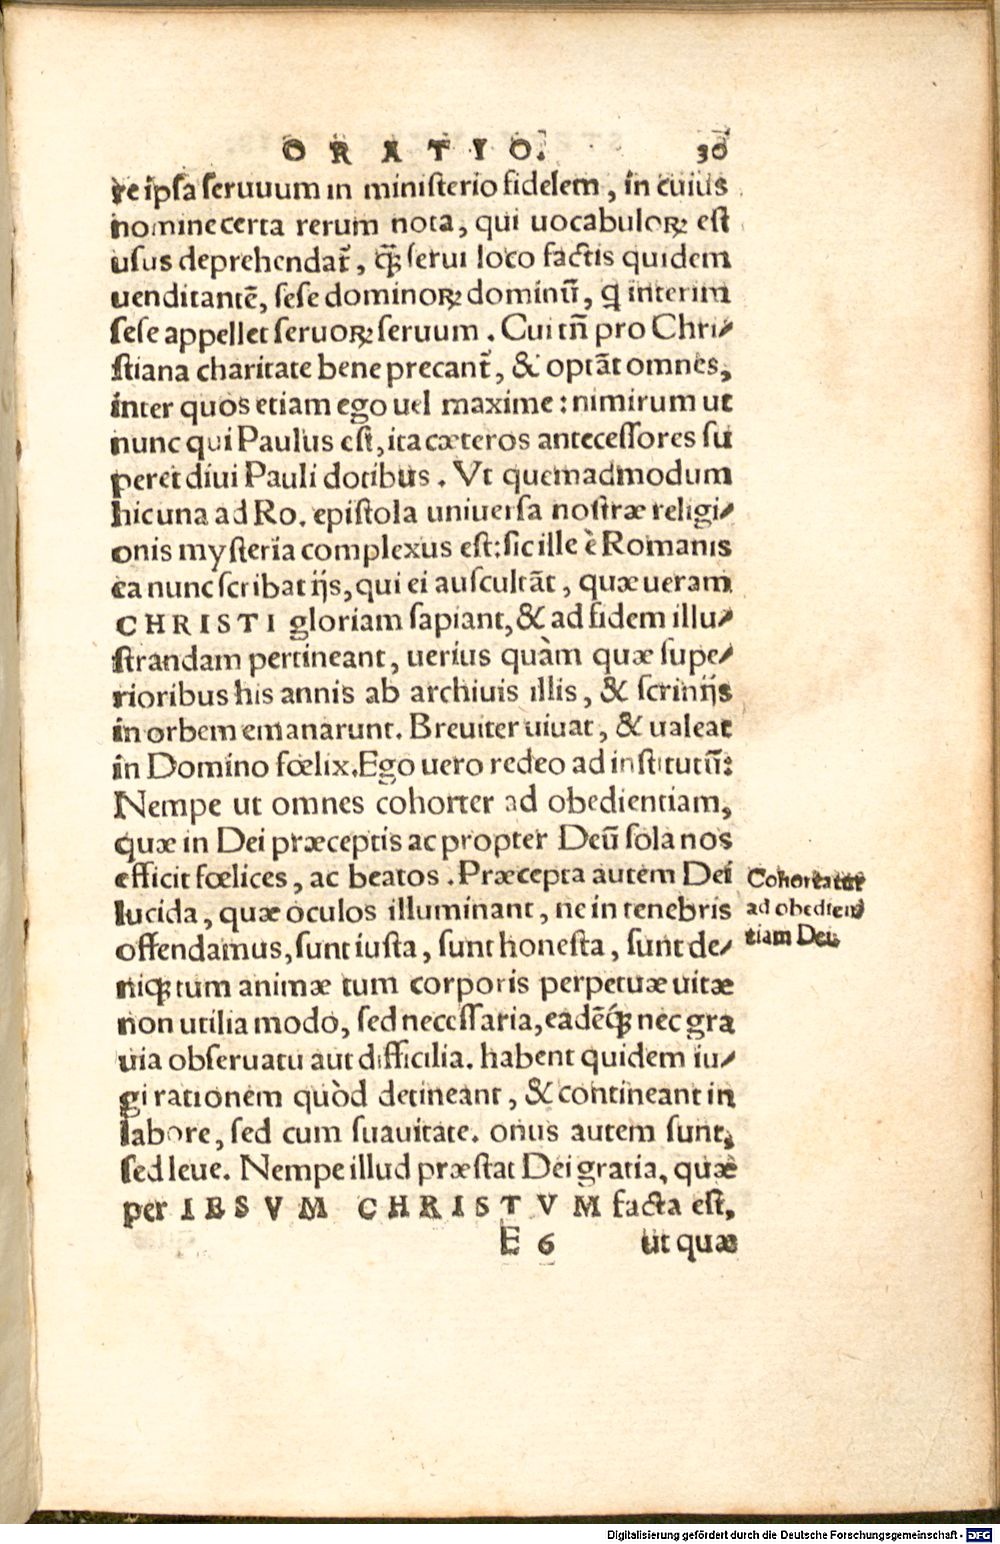 ORATIO. 30
re ipsa seruuum in ministerio fidelem, in cuius
nomine certa rerum nota, qui uocabuloꝝ est
usus deprehendat̃, q̃ꝫ serui loco factis quidem
uenditantẽ, sese dominoꝝ dominũ, q̃ interim
sese appellet seruoꝝ seruum. Cui tñ pro Chri-
stiana charitate bene precant̃, & optãt omnes,
inter quos etiam ego uel maxime: nimirum ut
nunc qui Paulus est, ita cæteros antecessores su
peret diui Pauli dotibus. Vt quemadmodum
hic una ad Ro. epistola uniuersa nostræ religi-
onis mysteria complexus est: sic ille è Romanis
ea nunc scribat ijs, qui ei auscultãt, quæ ueram
CHRISTI gloriam sapiant, & ad fidem illu-
strandam pertineant, uerius quàm quæ supe-
rioribus his annis ab archiuis illis, & scrinijs
in orbem emanarunt. Breuiter uiuat, & ualeat
in Domino fœlix. Ego uero redeo ad institutũ:
Nempe ut omnes cohorter ad obedientiam,
quæ in Dei præceptis ac propter Deũ sola nos
efficit fœlices, ac beatos. Præcepta autem Dei
lucida, quæ oculos illuminant, ne in tenebris
offendamus, sunt iusta, sunt honesta, sunt de-
niqꝫ tum animæ tum corporis perpetuæ uitæ
non utilia modo, sed necessaria, eadẽq́ꝫ nec gra
uia obseruatu aut difficilia. habent quidem iu-
gi rationem quòd detineant, & contineant in
labore, sed cum suauitate. onus autem sunt,
sed leue. Nempe illud præstat Dei gratia, quæ
per IESVM CHRISTVM facta est,
E 6 ut quæ
Cohortatur
ad obedien-
tiam Dei.
Digitalisierung gefördert durch die Deutsche Forschungsgemeinschaft - DFG